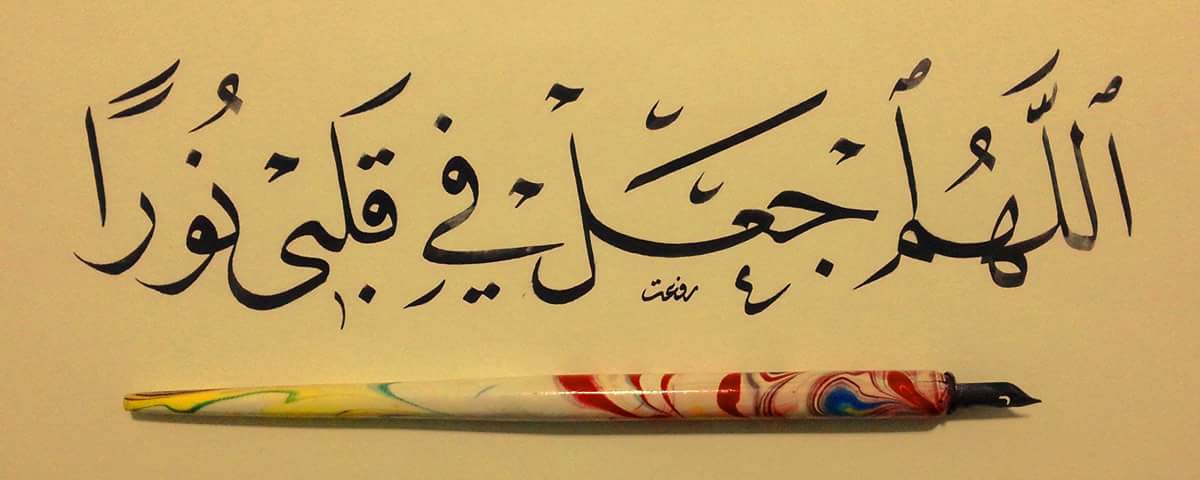 اَللّٰهُمَّ ٱجْعَلْ فِي قَلْبِى نُورًا
رفعت